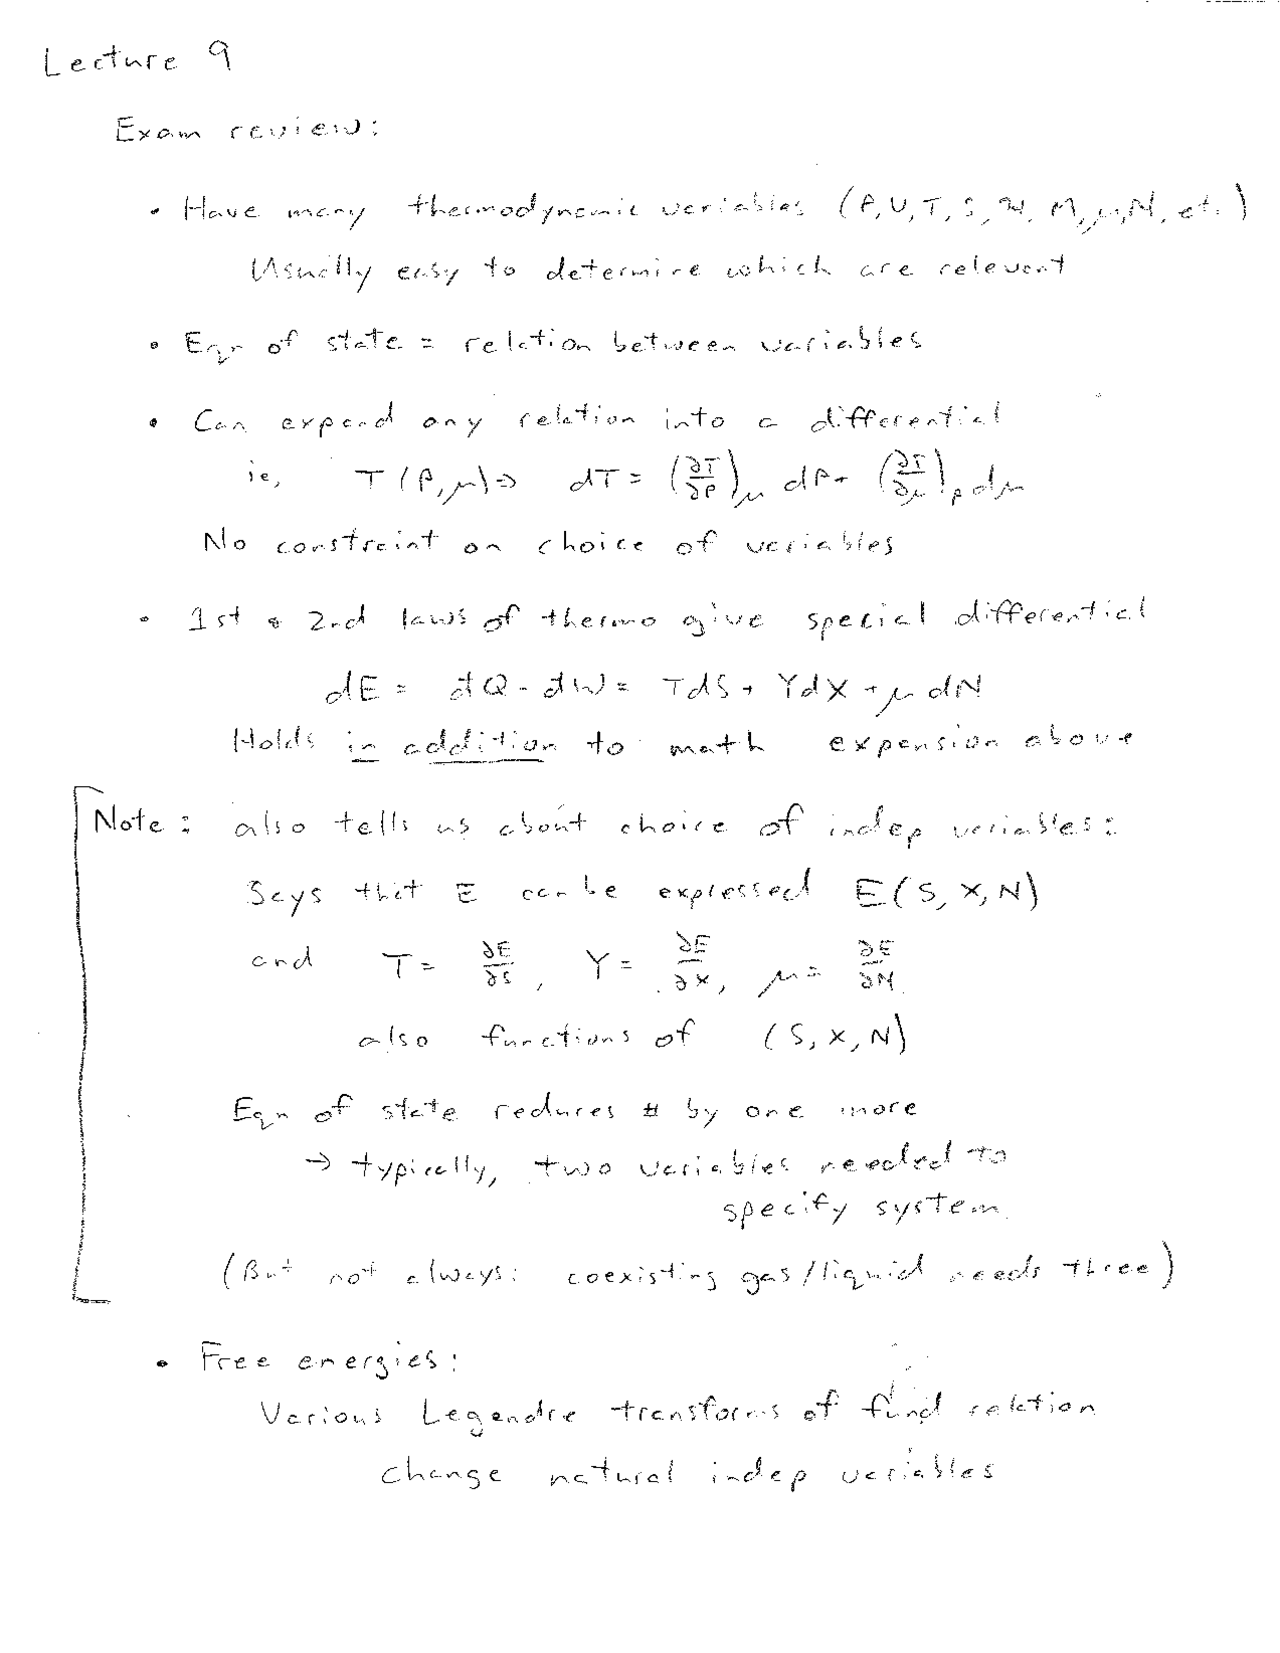 Lecture 9
Exam review:
• Have many thermodynamic variables (P, V, T, S, ℋ, M, μ, N, etc.)
Usually easy to determine which are relevent
• Eqn of state = relation between variables
• Can expand any relation into a differential
ie, T(P,μ) ⇒ dT = (∂T/∂P)_μ dP + (∂T/∂μ)_P dμ
No constraint on choice of variables
• 1st & 2nd laws of thermo give special differential
dE = đQ - đW = TdS + YdX + μdN
Holds in addition to math expansion above
Note: also tells us about choice of indep variables:
Says that E can be expressed E(S, X, N)
and T = ∂E/∂S, Y = ∂E/∂X, μ = ∂E/∂N
also functions of (S, X, N)
Eqn of state reduces # by one more
→ typically, two variables needed to
specify system.
(But not always: coexisting gas/liquid needs three)
• Free energies:
Various Legendre transforms of fund relation
change natural indep variables